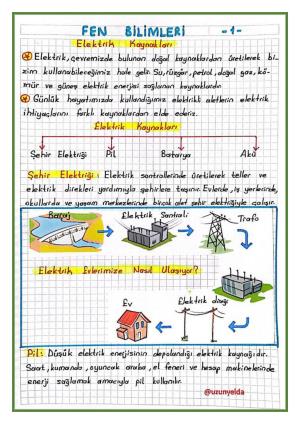 FEN BİLİMLERİ -1-
Elektrik Kaynakları
Elektrik, çevremizde bulunan doğal kaynaklardan üretilerek bi-
zim kullanabileceğimiz hale gelir. Su, rüzgar, petrol, doğal gaz, kö-
mür ve güneş elektrik enerjisi sağlanan kaynaklardır.
Günlük hayatımızda kullandığımız elektrikli aletlerin elektrik
ihtiyaçlarını farklı kaynaklardan elde ederiz.
Elektrik Kaynakları
Şehir Elektriği Pil Batarya Akü
Şehir Elektriği: Elektrik santrallerinde üretilerek teller ve
elektrik direkleri yardımıyla şehirlere taşınır. Evlerde, iş yerlerinde,
okullarda ve yaşam merkezlerinde birçok alet şehir elektriğiyle çalışır.
Baraj Elektrik Santrali Trafo
Elektrik Evlerimize Nasıl Ulaşıyor?
Ev Elektrik direği
Pil: Düşük elektrik enerjisinin depolandığı elektrik kaynağıdır.
Saat, kumanda, oyuncak araba, el feneri ve hesap makinelerinde
enerji sağlamak amacıyla pil kullanılır.
@uzunyelda